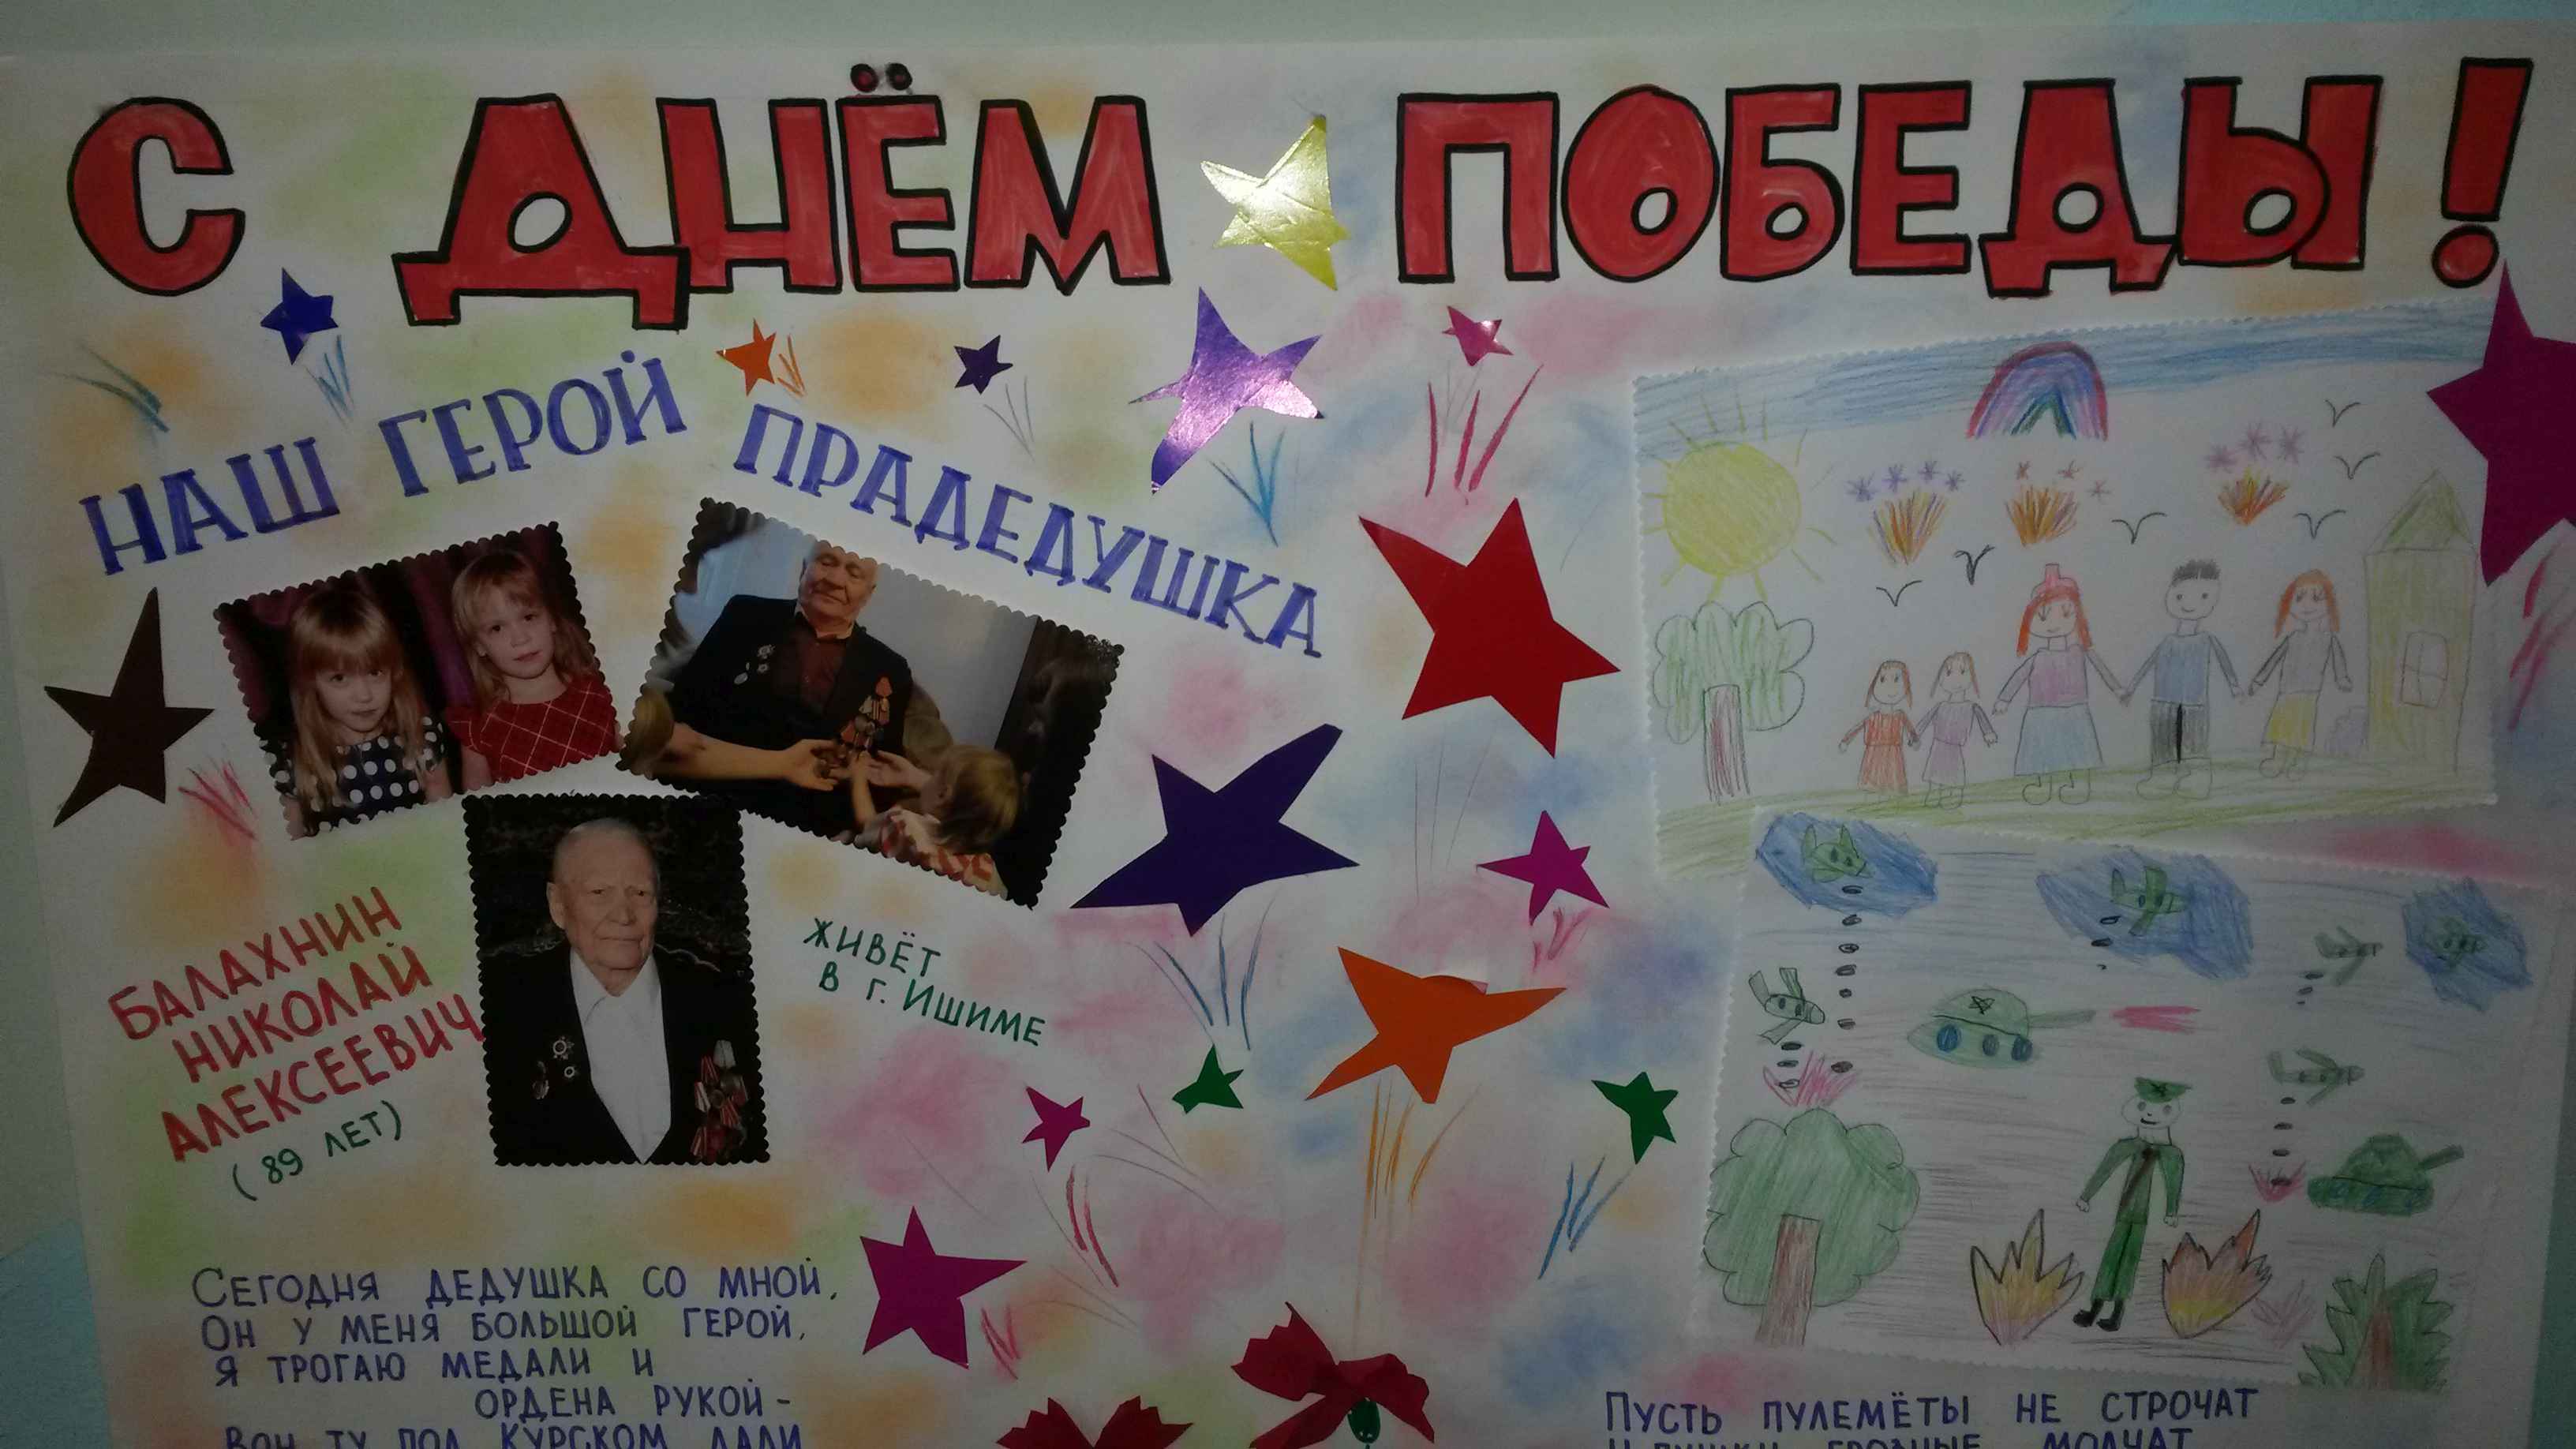 С ДНЁМ ПОБЕДЫ!
НАШ ГЕРОЙ ПРАДЕДУШКА
БАЛАХНИН
НИКОЛАЙ
АЛЕКСЕЕВИЧ
(89 ЛЕТ)
ЖИВЁТ
В Г. ИШИМЕ
СЕГОДНЯ ДЕДУШКА СО МНОЙ,
ОН У МЕНЯ БОЛЬШОЙ ГЕРОЙ,
Я ТРОГАЮ МЕДАЛИ И
ОРДЕНА РУКОЙ -
ВОН ТУ ПОД КУРСКОМ ДАЛИ
ПУСТЬ ПУЛЕМЁТЫ НЕ СТРОЧАТ
И ПУШКИ ГРОЗНЫЕ МОЛЧАТ